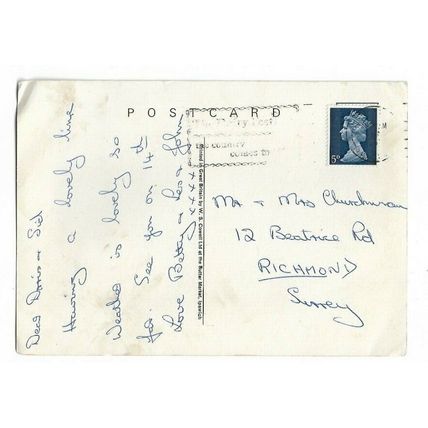 POSTCARD
Dear Doris & Sid
Having a lovely time
Weather is lovely so
far. See you on 14th
Love Betty & Les & John
xxxxxx
Printed in Great Britain by W. S. Cowell Ltd at the Butter Market, Ipswich
the country
comes to
5D
Mr & Mrs
12 Beatrice Rd
RICHMOND
Surrey